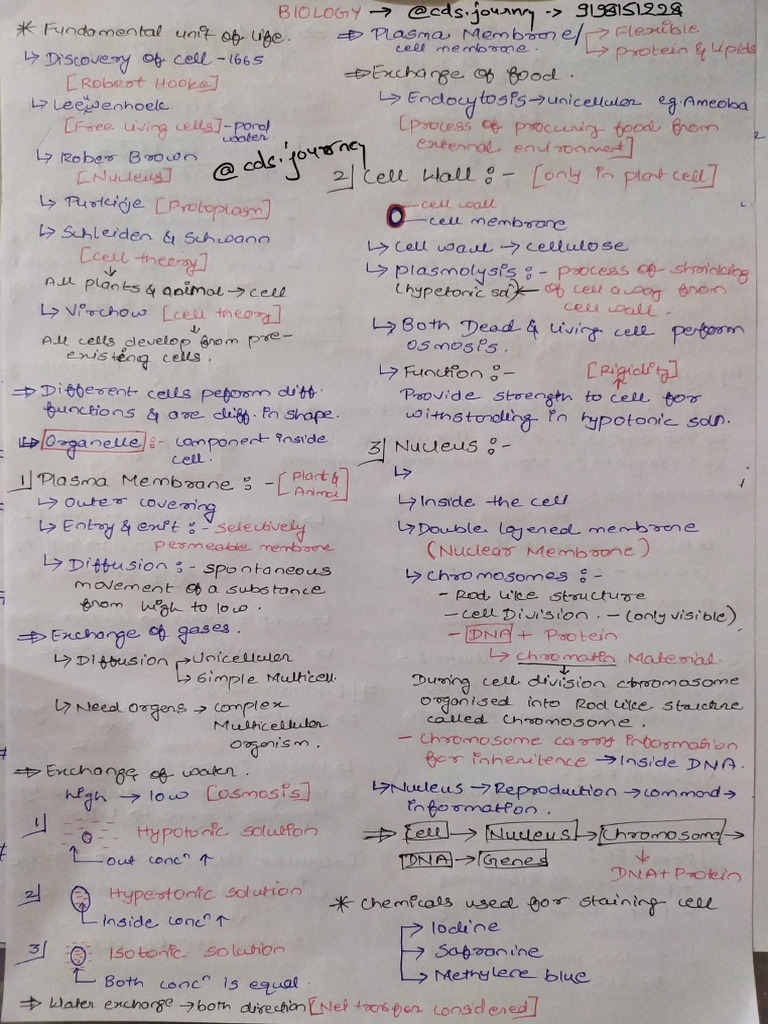 BIOLOGY → @cds.journey -> 9198151228
* Fundamental unit of life.
↳ Discovery of cell - 1665
[Robert Hooke]
↳ Leewenhoek
[Free living cells] - pond
water.
↳ Rober Brown
[Nucleus]
@cds.journey
↳ Purkinje [Protoplasm]
↳ Schleiden & Schwann
[cell theory]
All plants & animal → cell
↳ Virchow [cell theory]
All cells develop from pre-
existing cells.
⇒ Different cells peform diff.
functions & are diff. in shape.
↳ Organelle :- component inside
cell.
1] Plasma Membrane :- [Plant &
Animal]
↳ Outer covering
↳ Entry & exit :- selectively
permeable membrane
↳ Diffusion :- spontaneous
movement of a substance
from high to low.
⇒ Exchange of gases.
↳ Diffusion → Unicellular
↳ Simple Multicell.
↳ Need Organs → complex
Multicellular
Organism.
⇒ Exchange of water.
high → low [Osmosis]
1] Hypotonic solution
Out concⁿ ↑
2] Hypertonic solution
Inside concⁿ ↑
3] Isotonic solution
Both concⁿ is equal.
⇒ Water exchange → both direction [Net transfer considered]
⇒ Plasma Membrane/ → Flexible
cell membrane. → protein & Lipids
⇒ Exchange of food.
↳ Endocytosis → unicellular eg. Ameoba
[process of procuring food from
external environment]
2] Cell Wall :- [only in plant cell]
cell wall
cell membrane
↳ Cell wall → cellulose
↳ plasmolysis :- process of shrinking
(hypetonic solⁿ) of cell away from
cell wall.
↳ Both Dead & living cell perform
osmosis.
↳ Function :- [Rigidity]
Provide strength to cell for
withstanding in hypotonic soln.
3] Nucleus :-
↳
↳ Inside the cell
↳ Double layered membrane
(Nuclear Membrane)
↳ chromosomes :-
- Rod like structure
- cell Division. - (only visible)
- DNA + Protein
↳ chromatin Material.
During cell division chromosome
organised into Rod like structure
called chromosome.
- Chromosome carry information
for inheritence → Inside DNA.
↳ Nucleus → Reproduction → command →
information.
⇒ Cell → Nucleus → Chromosome →
DNA → Genes
DNA + Protein
* Chemicals used for staining cell
→ Iodine
→ Safranine
→ Methylene blue